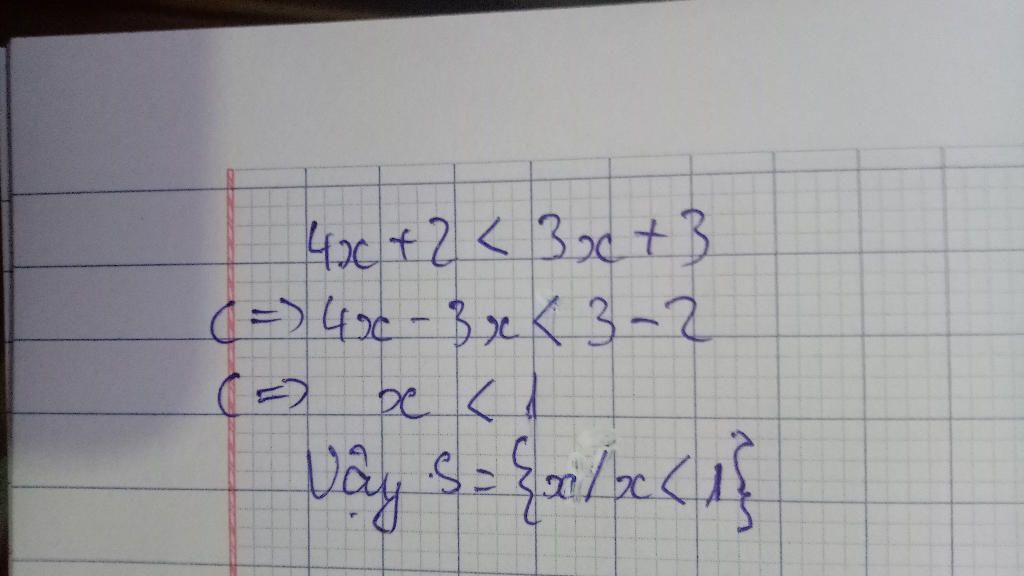 4x + 2 < 3x + 3
(=) 4x - 3x < 3 - 2
(=) x < 1
Vậy S = {x / x < 1}